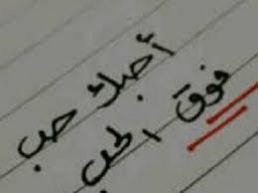 أحبك حب
فوق الحب